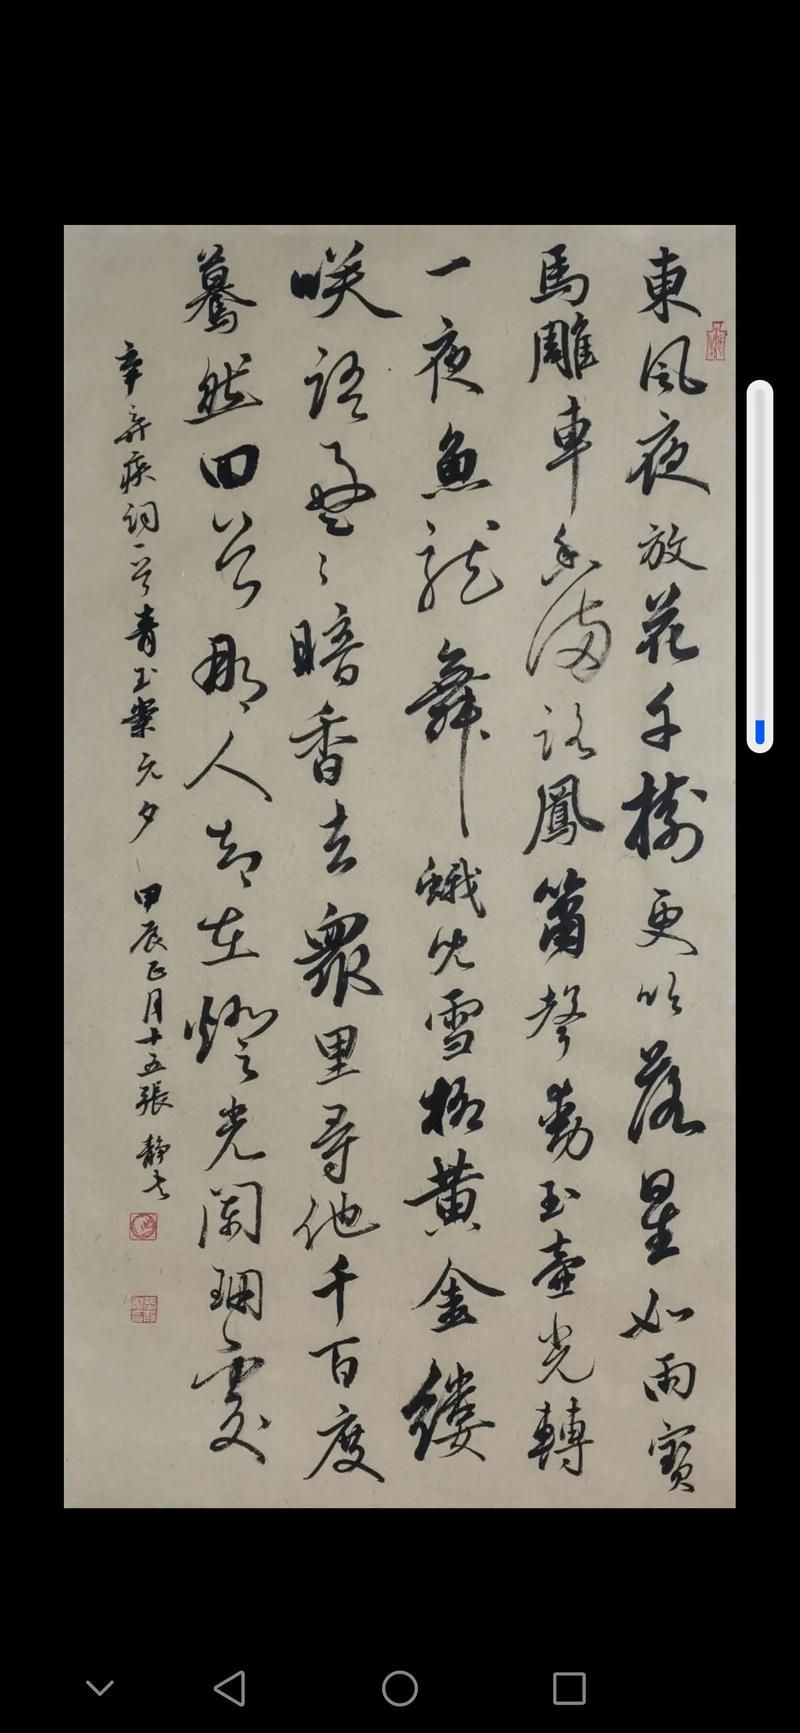 東風夜放花千樹更吹落星如雨寶
馬雕車香滿路鳳簫聲動玉壺光轉
一夜魚龍舞蛾兒雪柳黃金縷
咲語盈〻暗香去衆里尋他千百度
驀然回首那人却在燈光闌珊處
辛弃疾词一首青玉案元夕
甲辰正月十五張静书